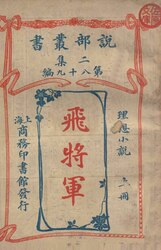 說部叢書
二集
第八十九編
理想小說
上冊
飛將軍
上海
商務印書館發行